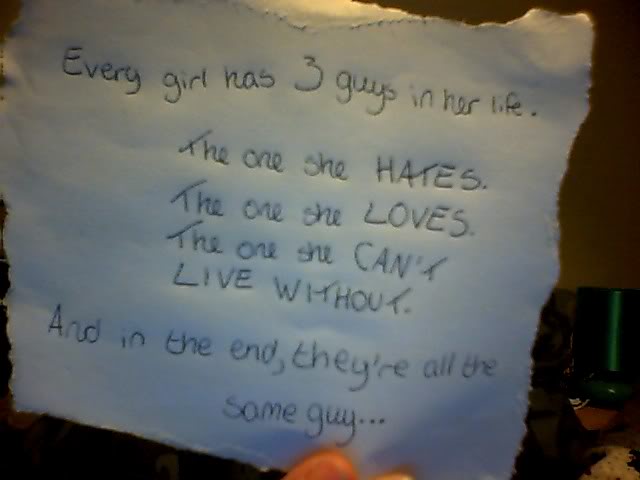 Every girl has 3 guys in her life.
The one she HATES.
The one she LOVES.
The one she CAN'T
LIVE WITHOUT.
And in the end, they're all the
same guy...